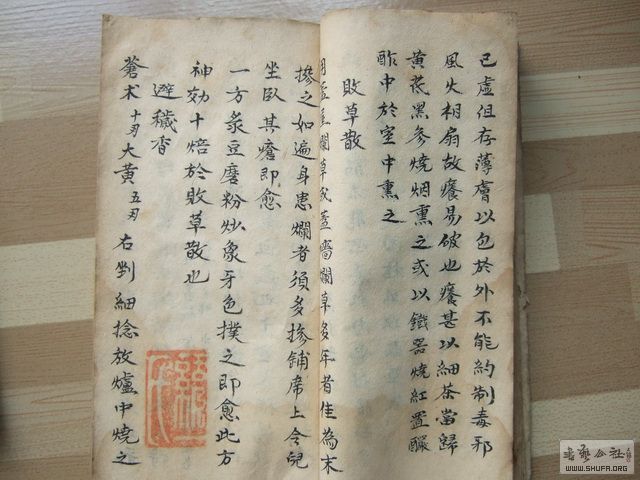 已虛但存薄膚以包於外不能約制毒邪
風火相扇故癢易破也癢甚以細茶當歸
黃芪黑參燒烟熏之或以鐵器燒紅置釅
酢中於室中熏之
敗草散
用蓋屋爛草或蓋墻爛草多年者佳為末
摻之如遍身患爛者須多摻鋪席上令兒
坐臥其瘡即愈
一方菉豆磨粉炒象牙色撲之即愈此方
神効十焙於敗草散也
避穢香
蒼朮十刃大黃五刃右剉細捻放爐中燒之
書藝公社
WWW.SHUFA.ORG